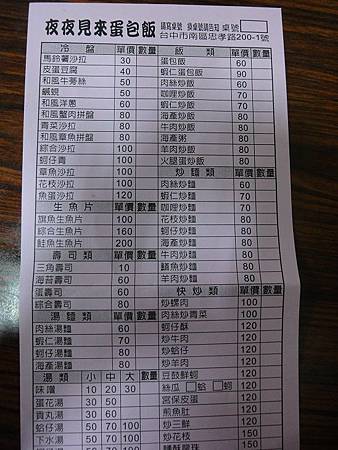 夜夜見來蛋包飯 請寫桌號 換桌號請告知 桌號
台中市南區忠孝路200-1號
冷盤 單價 數量
馬鈴薯沙拉 30
皮蛋豆腐 40
和風牛蒡絲 50
鹹蜆 50
和風洋蔥 60
和風蟹肉拼盤 80
青菜沙拉 80
和風章魚拼盤 80
綜合沙拉 100
蚵仔青 100
章魚沙拉 100
花枝沙拉 100
魚蛋沙拉 120
生魚片 單價 數量
旗魚生魚片 100
綜合生魚片 160
鮭魚生魚片 200
壽司類 單價 數量
三角壽司 10
海苔壽司 60
蛋壽司 60
綜合壽司 80
湯麵類 單價 數量
肉絲湯麵 60
蝦仁湯麵 70
蚵仔湯麵 80
海產湯麵 80
湯類 小 中 大 數量
味噌 10 20 30
蛋花湯 30 50
貢丸湯 30 60
蛤仔湯 50 70 100
下水湯 50 70 100
飯類 單價 數量
蛋包飯 60
蝦仁蛋包飯 90
肉絲炒飯 60
咖哩炒飯 70
蝦仁炒飯 70
海產炒飯 80
牛肉炒飯 80
海產粥 80
羊肉炒飯 80
火腿蛋炒飯 80
炒麵類 單價 數量
肉絲炒麵 60
蝦仁炒麵 70
咖哩炒麵 70
花枝炒麵 80
蚵仔炒麵 80
海產炒麵 80
牛肉炒麵 80
鱔魚炒麵 80
羊肉炒麵 80
快炒類 單價 數量
炒螺肉 100
肉絲炒青菜 100
蚵仔酥 120
炒牛肉 120
炒蛤仔 120
炒羊肉 120
豆鼓鮮蚵 120
絲瓜 □蛤 □蚵 120
宮保皮蛋 120
煎魚肚 120
炒三鮮 120
炒花枝 150